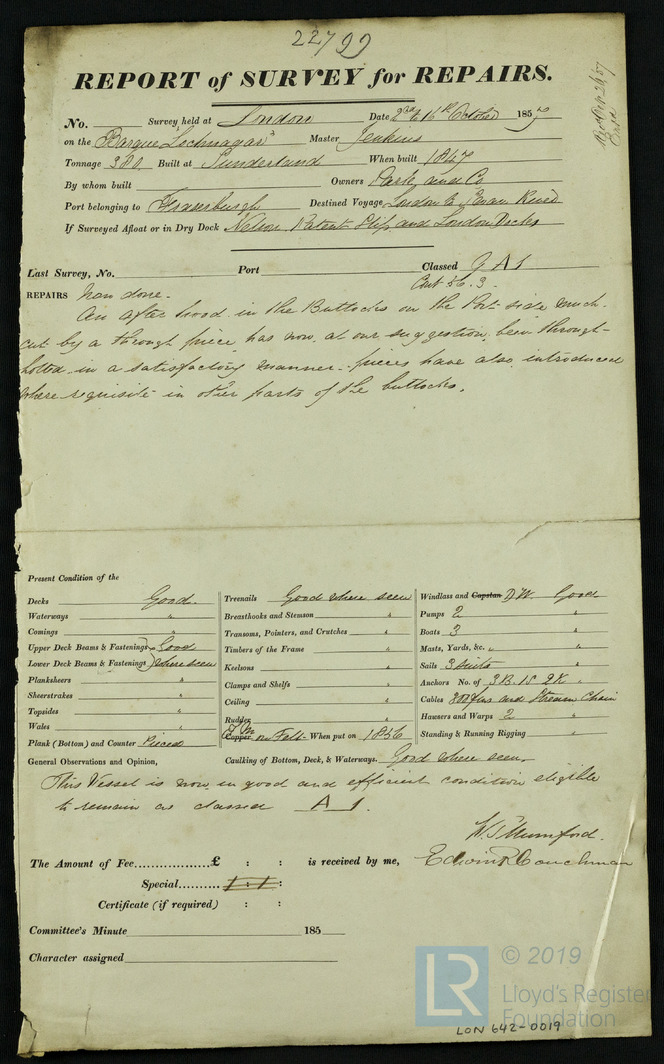 22799
REPORT of SURVEY for REPAIRS.
No. Survey held at London Date 2nd & 16th October 1857
on the Barque "Lochnagar" Master Jenkins
Tonnage 380 Built at Sunderland When built 1847
By whom built Owners Park and Co
Port belonging to Fraserburgh Destined Voyage London to Swan River
If Surveyed Afloat or in Dry Dock Nelson Patent Slip and London Docks
Last Survey, No. Port Classed 9 A 1
Cont 56. 3.
REPAIRS Now done.
An after hood in the Buttocks on the Port side much
cut by a through piece has now, at our suggestion, been through
bolted in a satisfactory manner. pieces have also introduced
where requisite in other parts of the buttocks.
Present Condition of the
Decks Good.
Waterways "
Comings "
Upper Deck Beams & Fastenings Good
Lower Deck Beams & Fastenings where seen
Planksheers "
Sheerstrakes "
Topsides "
Wales "
Plank (Bottom) and Counter Pieced
Treenails Good where seen
Breasthooks and Stemson "
Transoms, Pointers, and Crutches "
Timbers of the Frame "
Keelsons "
Clamps and Shelfs "
Ceiling "
Rudder "
Y.M. Copper on Felt When put on 1856
Caulking of Bottom, Deck, & Waterways. Good where seen.
Windlass and Capstan D.W. Good
Pumps 2 "
Boats 3 "
Masts, Yards, &c. " "
Sails 3 Suits "
Anchors No. of 3 B. 1 S. 2 K. "
Cables 300 fms and Stream Chain
Hawsers and Warps 2 "
Standing & Running Rigging "
General Observations and Opinion,
This Vessel is now in good and efficient condition eligible
to remain as classed A 1.
W. J. Mumford.
The Amount of Fee £ : : is received by me, Edwin R Couchman
Special : :
Certificate (if required) : :
Committee's Minute 185
Character assigned
© 2019
LR
Lloyd's Register
Foundation
LON 642-0019